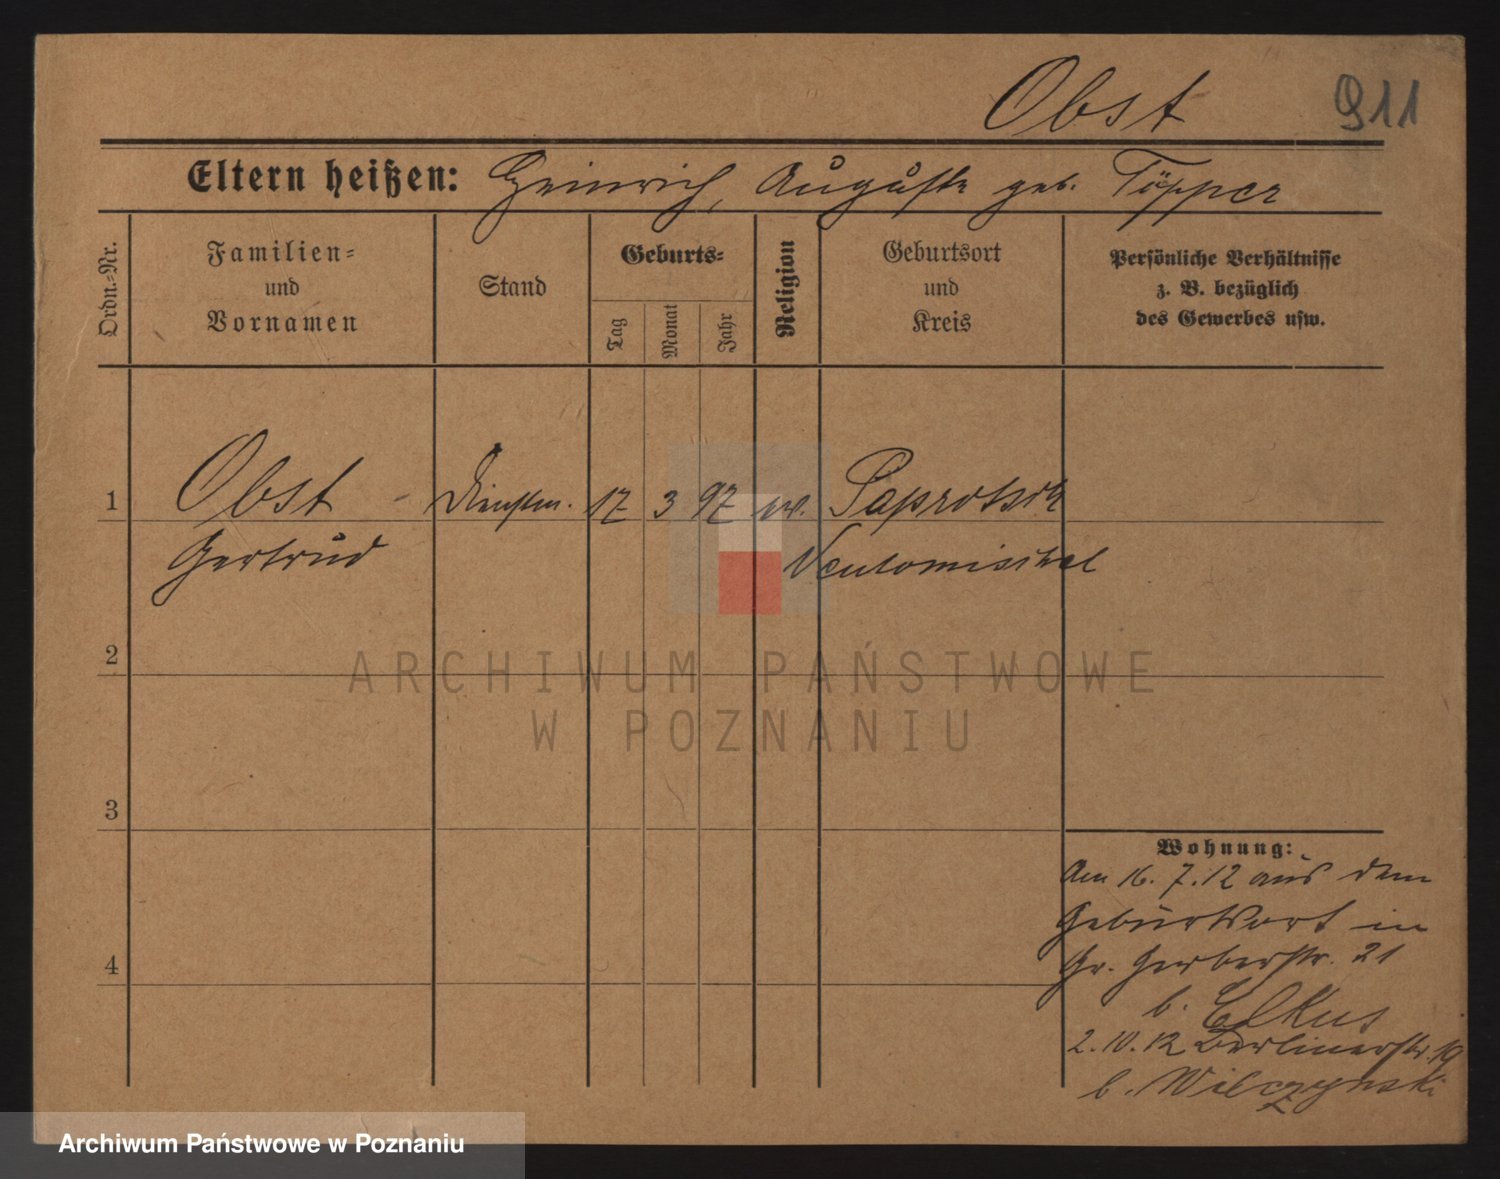 Obst 911
Eltern heißen: Heinrich, Auguste geb. Töpper
Ordn.-Nr.
Familien-
und
Vornamen
Stand
Geburts-
Tag
Monat
Jahr
Religion
Geburtsort
und
Kreis
Persönliche Verhältnisse
z. B. bezüglich
des Gewerbes usw.
1 Obst Dienstm. 17 3 97 ev. Paprotsch
Gertrud Neutomischel
2
3
4
Wohnung:
Am 16.7.12 aus dem
Geburtsort in
Gr. Gerberstr. 21
b. Elkus
2.10.12 Berlinerstr. 19
b. Wilczynski
ARCHIWUM PAŃSTWOWE
W POZNANIU
Archiwum Państwowe w Poznaniu